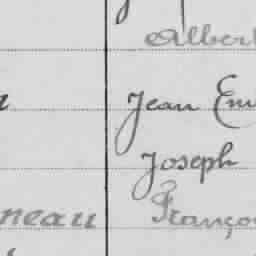 Albert
Jean Em
Joseph
neau Franço